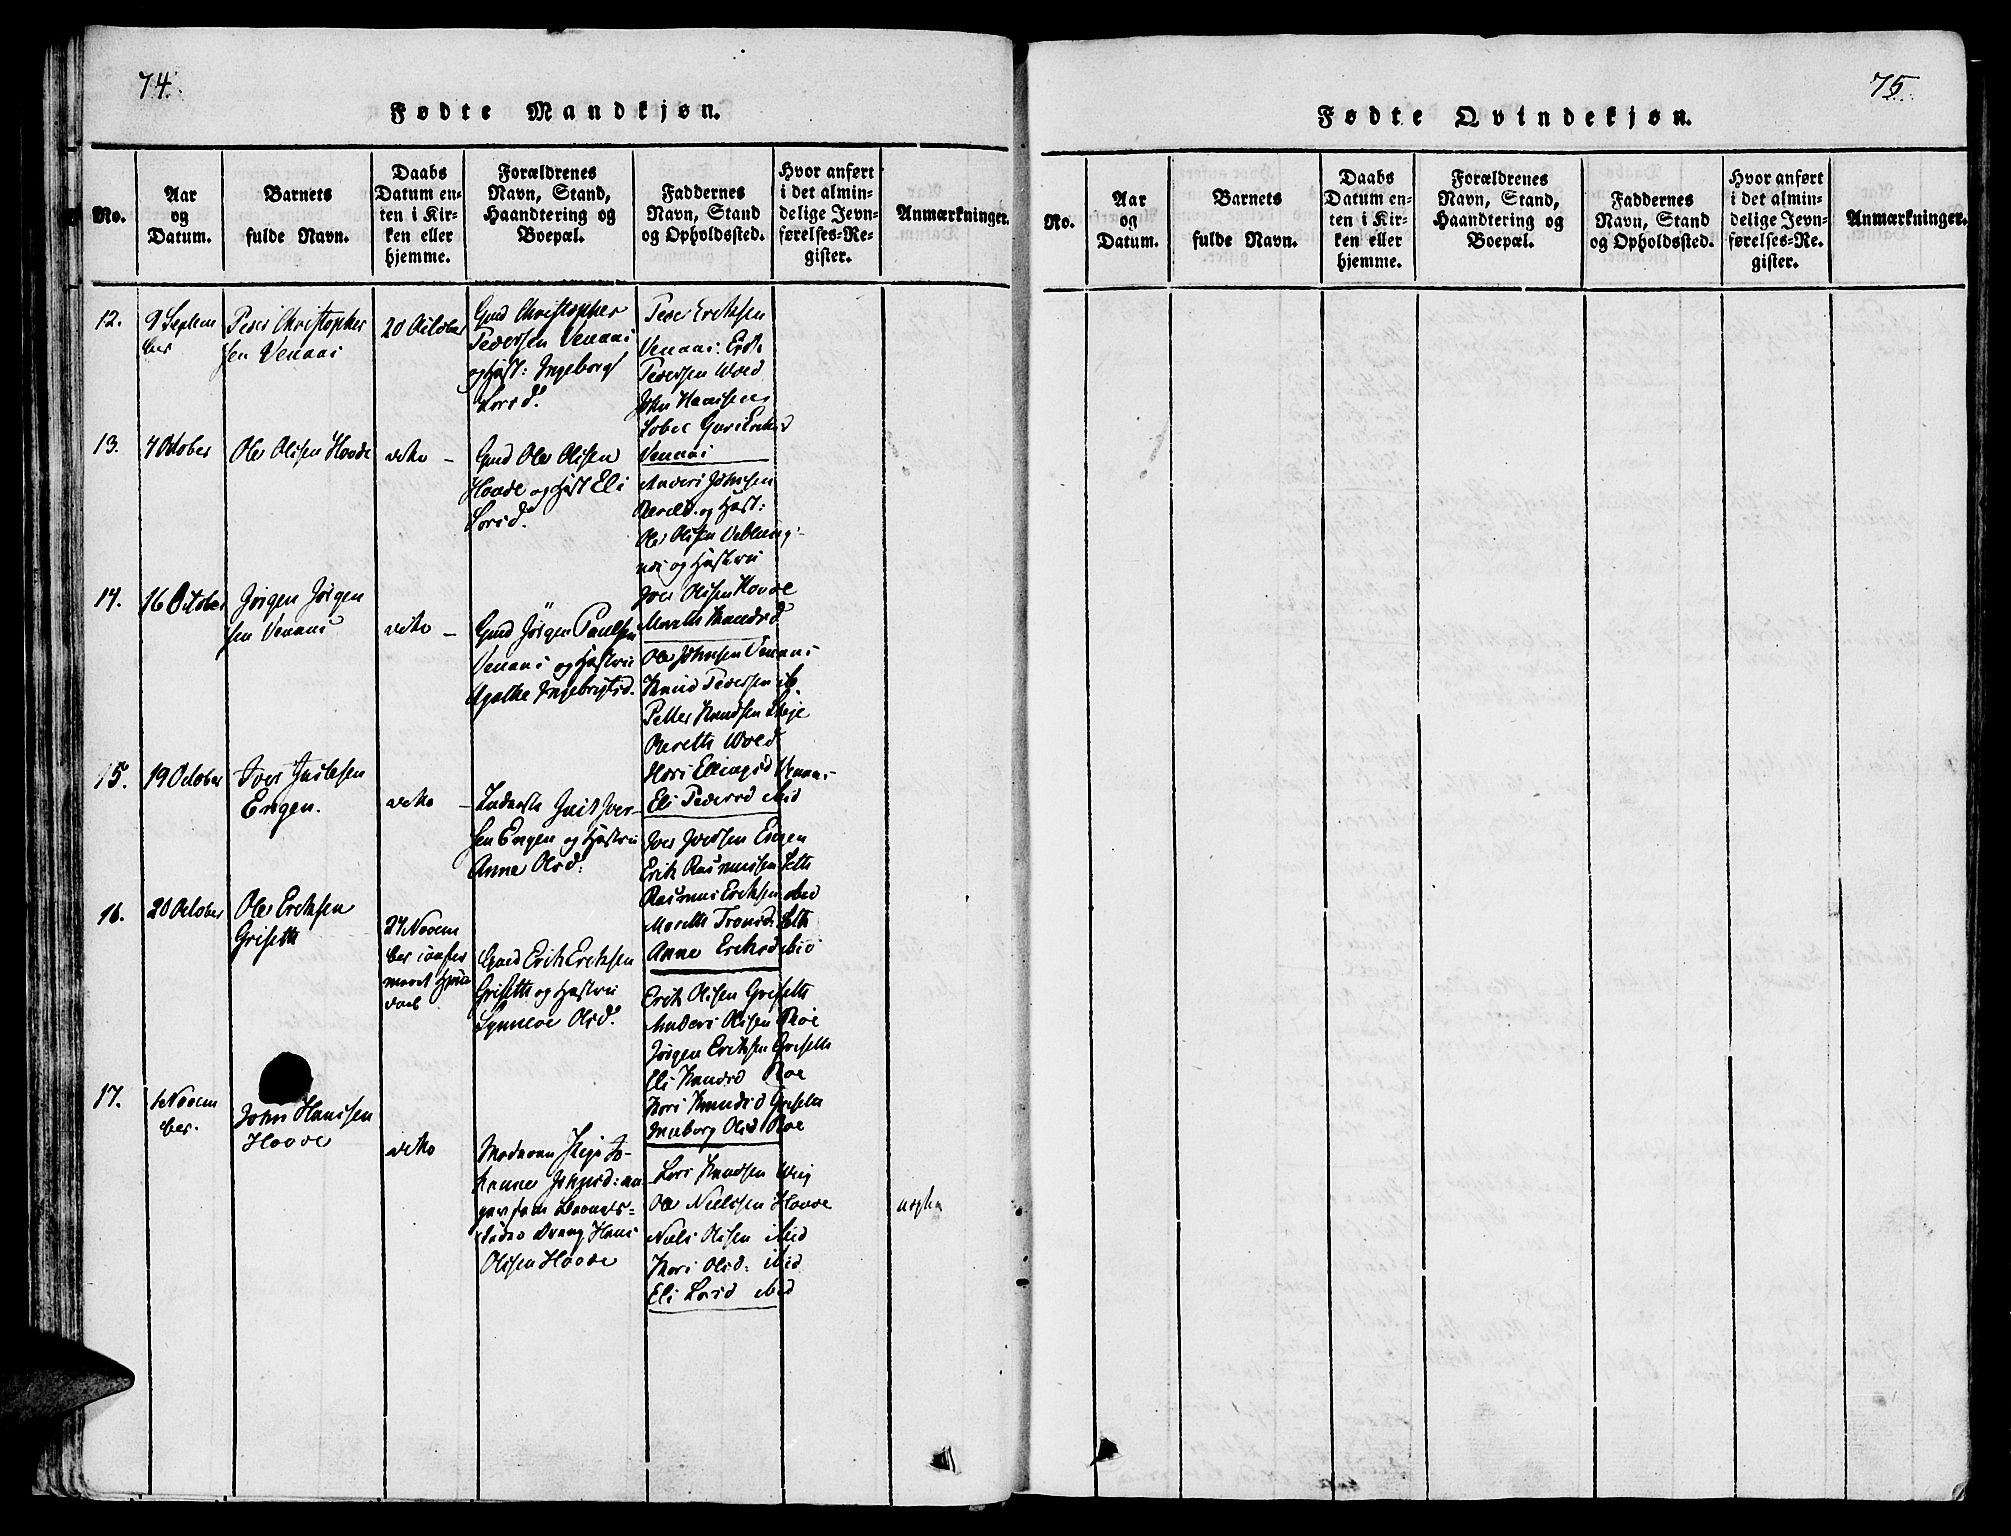 74.
Fødte Mandkjøn.
No.
Aar
og
Datum.
Barnets
fulde Navn.
Daabs
Datum en-
ten i Kir-
ken eller
hjemme.
Forældrenes
Navn, Stand,
Haandtering og
Boepæl.
Faddernes
Navn, Stand
og Opholdssted.
Hvor anført
i det almin-
delige Jevn-
førelses-Re-
gister.
Anmærkninger.
12.
9 Septem
ber
Peder Christopher
sen Venaas
20 October
Gmd Christopher
Pedersen Venaas
og Hust: Ingeborg
Larsd.
Peder Eriksen
Venaas. Erik
Pedersen Wold
John Hansen
Guri Eriksd
Venaas
13.
7 October
Ole Olisen Hovde
dito –
Gmd Ole Olisen
Hovde og Hust Eli
Larsd.
Anders Johnsen
og Hust:
Ole Olisen Veblung-
nes og Hustru
Iver Olisen Hovde
Marith Knudsd
14.
16 October
Jørgen Jørgen
sen Venaas
dito –
Gmd Jørgen Paulsen
Venaas og Hustru
Agathe Ingebrigtsd.
Ole Johnsen Venaas
Knud Pedersen ib.
Petter Knudsen
Bereth Wold
Kari Ellingsd Venaas
Eli Pedersd ibid
15.
19 October
Iver Justsen
Engen.
dito –
Just Iver-
sen Engen og Hustru
Anne Olsd:
Iver Iversen Engen
Erik Rasmussen Seth
Rasmus Eriksen ibid
Marith Seth
Anne Eriksd ibid
16.
20 October
Ole Eriksen
Griseth
27 Novem
ber
Gmd Erik Eriksen
Griseth og Hustru
Synneve Olsd.
Erik Olisen Griseth
Anders Olisen Roe
Jørgen Eriksen Griseth
Eli Knudsd Roe
Kari Knudsd Griseth
Ingeborg Olsd Roe
17.
1 Novem
ber.
John Hansen
Hovde
dito
Drang Hans
Olisen Hovde
Lars Knudsen
Ole Nielssen Hovde
Niels Olisen ibid
Kari Olsd: ibid
Eli Larsd ibid
uægte
75.
Fødte Qvindekjøn.
No.
Aar
og
Datum.
Barnets
fulde Navn.
Daabs
Datum en-
ten i Kir-
ken eller
hjemme.
Forældrenes
Navn, Stand,
Haandtering og
Boepæl.
Faddernes
Navn, Stand
og Opholdssted.
Hvor anført
i det almin-
delige Jevn-
førelses-Re-
gister.
Anmærkninger.